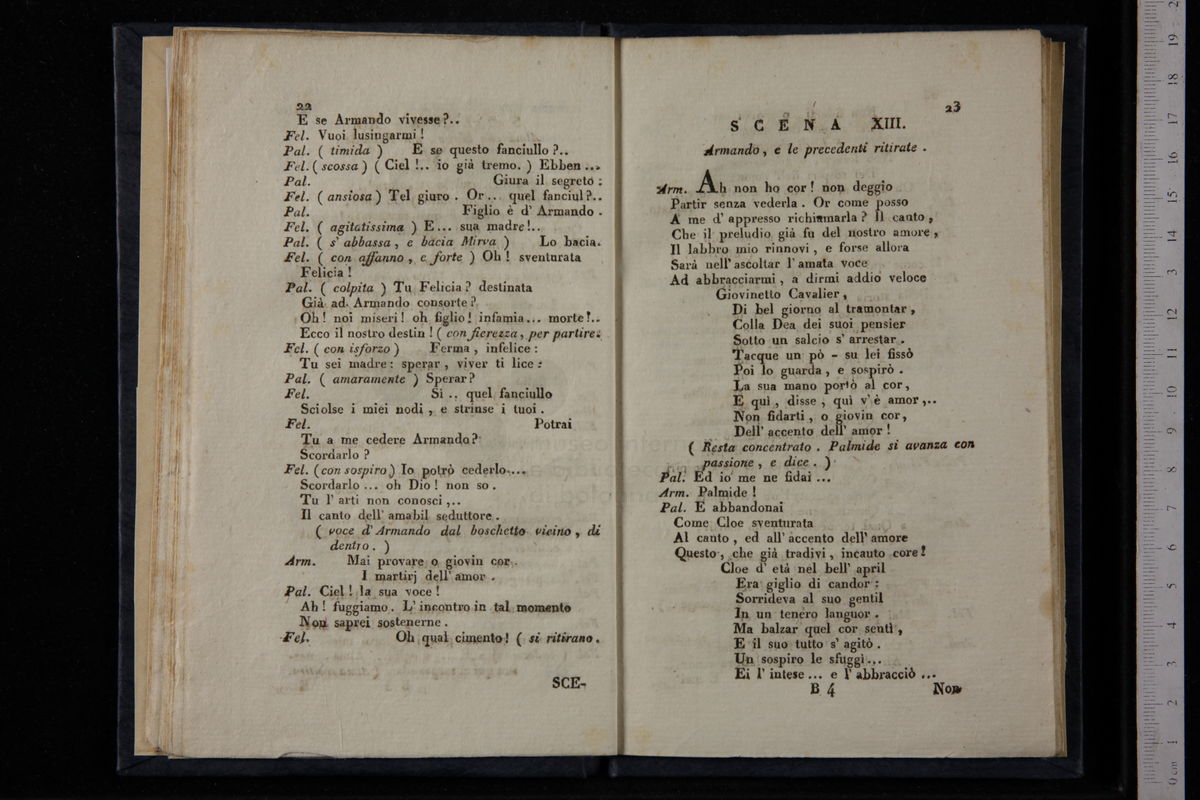 22
E se Armando vivesse?..
Fel. Vuoi lusingarmi!
Pal. ( timida ) E se questo fanciullo?..
Fel. ( scossa ) ( Ciel!.. io già tremo. ) Ebben...
Pal. Giura il segreto:
Fel. ( ansiosa ) Tel giuro. Or... quel fanciul?..
Pal. Figlio è d' Armando.
Fel. ( agitatissima ) E... sua madre!..
Pal. ( s' abbassa, e bacia Mirva ) Lo bacia.
Fel. ( con affanno, e forte ) Oh! sventurata
Felicia!
Pal. ( colpita ) Tu Felicia? destinata
Già ad Armando consorte?
Oh! noi miseri! oh figlio! infamia... morte!..
Ecco il nostro destin! ( con fierezza, per partire:
Fel. ( con isforzo ) Ferma, infelice:
Tu sei madre: sperar, viver ti lice:
Pal. ( amaramente ) Sperar?
Fel. Si .. quel fanciullo
Sciolse i miei nodi, e strinse i tuoi.
Fel. Potrai
Tu a me cedere Armando?
Scordarlo?
Fel. ( con sospiro ) Io potrò cederlo....
Scordarlo... oh Dio! non so.
Tu l' arti non conosci,..
Il canto dell' amabil seduttore.
( voce d' Armando dal boschetto vicino, di
dentro. )
Arm. Mai provare o giovin cor.
I martirj dell' amor.
Pal. Ciel! la sua voce!
Ah! fuggiamo. L' incontro in tal momento
Non saprei sostenerne.
Fel. Oh qual cimento! ( si ritirano.
SCE-
23
SCENA XIII.
Armando, e le precedenti ritirate.
Arm. Ah non ho cor! non deggio
Partir senza vederla. Or come posso
A me d' appresso richiamarla? Il canto,
Che il preludio già fu del nostro amore,
Il labbro mio rinnovi, e forse allora
Sarà nell' ascoltar l' amata voce
Ad abbracciarmi, a dirmi addio veloce
Giovinetto Cavalier,
Di bel giorno al tramontar,
Colla Dea dei suoi pensier
Sotto un salcio s' arrestar.
Tacque un pò - su lei fissò
Poi lo guarda, e sospirò.
La sua mano portò al cor,
E quì, disse, quì v' è amor,..
Non fidarti, o giovin cor,
Dell' accento dell' amor!
( Resta concentrato. Palmide si avanza con
passione, e dice. )
Pal. Ed io me ne fidai...
Arm. Palmide!
Pal. E abbandonai
Come Cloe sventurata
Al canto, ed all' accento dell' amore
Questo, che già tradivi, incauto core!
Cloe d' età nel bell' april
Era giglio di candor:
Sorrideva al suo gentil
In un tenero languor.
Ma balzar quel cor sentì,
E il suo tutto s' agitò.
Un sospiro le sfuggì...
Ei l' intese... e l' abbracciò...
B 4
Non